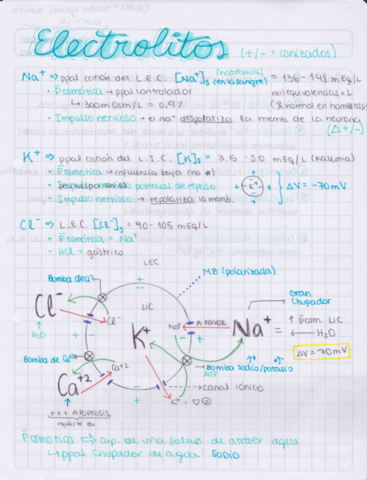 Electrolitos (+/- = ionizados)
Na⁺ ⇒ ppal catión del L.E.C. [Na⁺]s (natremia) (en la sangre) = 136-145 mEq/L
miliequivalencias x L
• Posmótica → ppal controlador
(% normal en hombres)
↳ 300 mOsm/L = 0,9%
• Impulso nervioso → el Na⁺ despolariza la memb de la neurona
(Δ+/-)
K⁺ ⇒ ppal catión del L.I.C. [K]s = 3.5 - 5.0 mEq/L (Kalemia)
• Posmótica → influencia baja
• potencial de reposo + -K⁺- + ΔV = -70mV
• Impulso nervioso → repolariza la memb.
Cl⁻ ⇒ L.E.C. [Cl⁻]s = 90-105 mEq/L
• Posmótica = Na⁺
• HCl = gástrico
LEC
Bomba de Cl⁻
MB (polarizada)
LIC
Gran chupador
Cl⁻
Cl⁻
K⁺
Na⁺
A FAVOR
Na⁺
= ↑ Posm. LIC
← H₂O
H₂O
ΔV = -70mV
Bomba de Ca⁺²
Ca⁺²
Ca⁺²
Bomba sodio/potasio
ATP
canal iónico
+++ APOPTOSIS
K⁺
Posmotica ⇒ cap. de una soluto de atraer agua
↳ ppal chupador de agua: SODIO